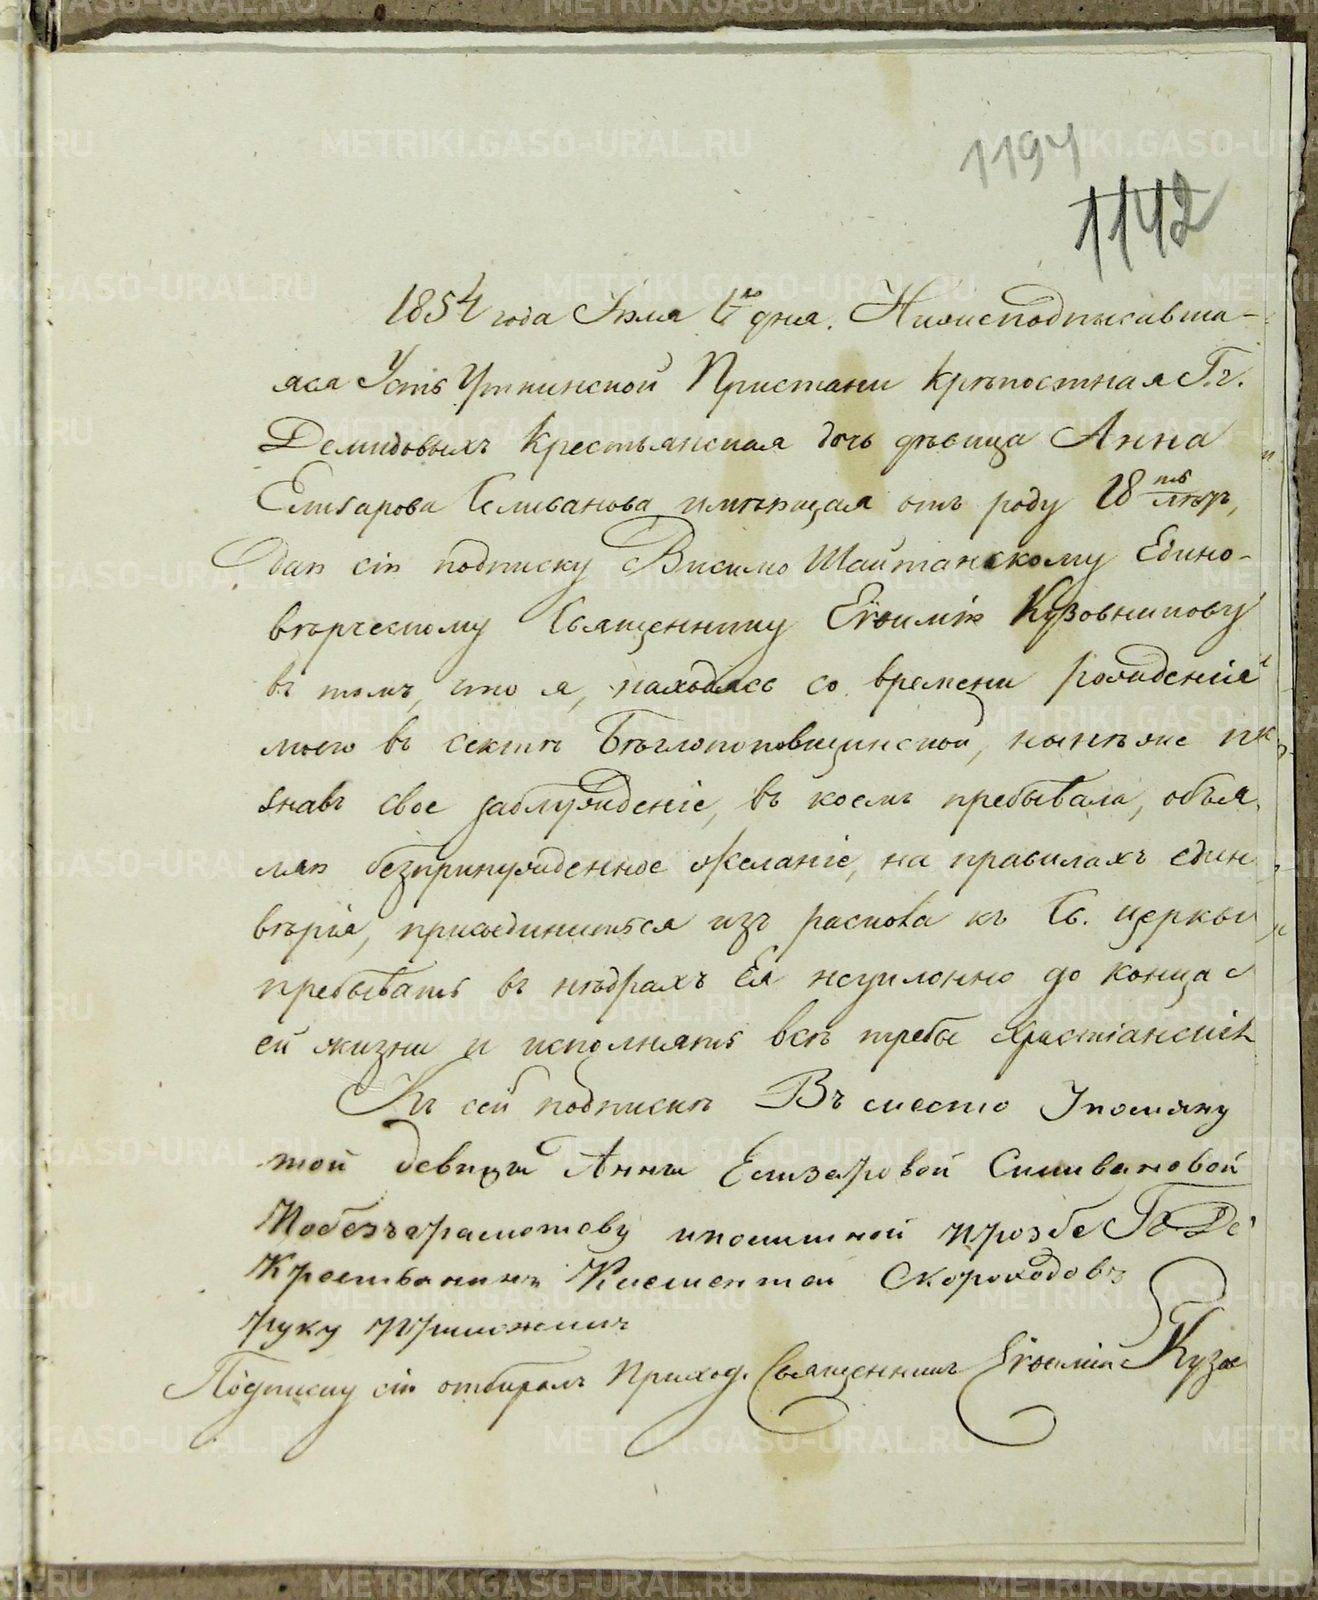 1194
1142
1854 года Июля дня. Нижеподписавша-
яся Усть Уткинской Пристани крѣпостная Г.г.
Демидовыхъ Крестьянская дочь дѣвица Анна
Елизарова Селиванова имѣющая отъ роду 18 ть лѣтъ,
Даю сію подписку Висимо Шайтанскому Едино-
вѣрческому Священнику Евѳимію Кузовникову
въ томъ, что я, находясь со времени рожденія
моего въ сектѣ Бѣглопоповщинской, нынѣ же
знавъ свое заблужденіе, въ коемъ пребывала, объя
ляю безпринужденное желаніе, на правилахъ един
вѣрія, присоединиться изъ раскола къ Св. церкви
пребывать въ нѣдрахъ Ея неуклонно до конца с
ей жизни и исполнять всѣ требы христіанскія
Къ сей подпискѣ Въ сместо Упомяну
той девицы Анны Елизаровой Силивановой
Побезъграмотству иполишной прозбе Го Де
Крестьянинъ Клементей Скороходовъ
руку приложилъ
Подписку сію отбиралъ Приход. Священникъ Евѳимій Кузов
METRIKI.GASO-URAL.RU